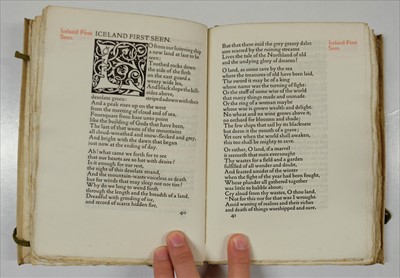 Iceland First
Seen.
ICELAND FIRST SEEN.
LO from our loitering ship
a new land at last to be
seen;
Toothed rocks down
the side of the firth
on the east guard a
weary wide lea,
And black slope the hill-
sides above,
striped adown with their
desolate green:
And a peak rises up on the west
from the meeting of cloud and of sea,
Foursquare from base unto point
like the building of Gods that have been,
The last of that waste of the mountains
all cloud-wreathed and snow-flecked and grey,
And bright with the dawn that began
just now at the ending of day.
Ah! what came we forth for to see
that our hearts are so hot with desire?
Is it enough for our rest,
the sight of this desolate strand,
And the mountain-waste voiceless as death
but for winds that may sleep not nor tire?
Why do we long to wend forth
through the length and breadth of a land,
Dreadful with grinding of ice,
and record of scarce hidden fire,
40
But that there mid the grey grassy dales
sore scarred by the ruining streams
Lives the tale of the Northland of old
and the undying glory of dreams?
O land, as some cave by the sea
where the treasures of old have been laid,
The sword it may be of a king
whose name was the turning of fight:
Or the staff of some wise of the world
that many things made and unmade.
Or the ring of a woman maybe
whose woe is grown wealth and delight.
No wheat and no wine grows above it,
no orchard for blossom and shade;
The few ships that sail by its blackness
but deem it the mouth of a grave;
Yet sure when the world shall awaken,
this too shall be mighty to save.
Or rather, O land, if a marvel
it seemeth that men ever sought
Thy wastes for a field and a garden
fulfilled of all wonder and doubt,
And feasted amidst of the winter
when the fight of the year had been fought,
Whose plunder all gathered together
was little to babble about;
Cry aloud from thy wastes, O thou land,
"Not for this nor for that was I wrought
Amid waning of realms and of riches
and death of things worshipped and sure,
41
Iceland First
Seen.